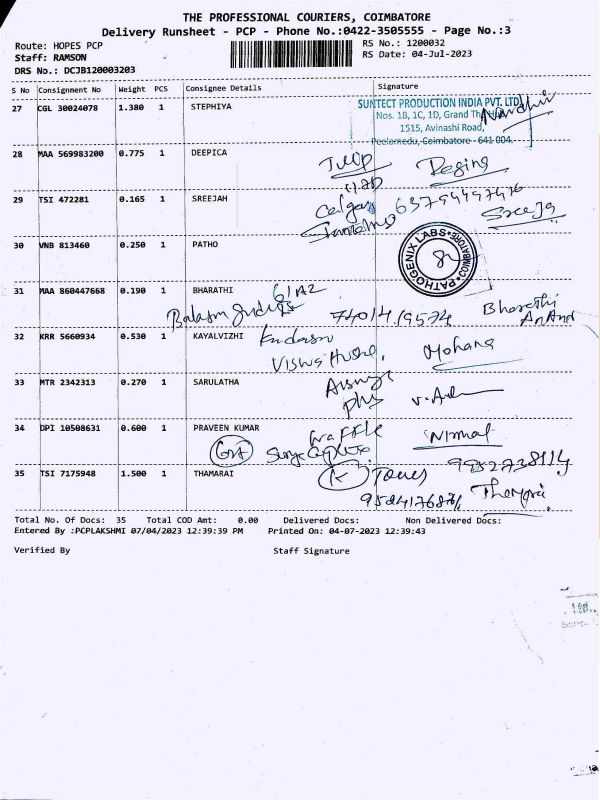 THE PROFESSIONAL COURIERS, COIMBATORE
Delivery Runsheet - PCP - Phone No.:0422-3505555 - Page No.:3
Route: HOPES PCP
RS No.: 1200032
Staff: RAMSON
RS Date: 04-Jul-2023
DRS No.: DCJB120003203
S No Consignment No Weight PCS Consignee Details Signature
27 CGL 30024078 1.380 1 STEPHIYA
SUNTECT PRODUCTION INDIA PVT. LTD
Nos. 1B, 1C, 1D, Grand
1515, Avinashi Road,
Peelamedu, Coimbatore - 641 004.
28 MAA 569983200 0.775 1 DEEPICA
Tulip Regina
29 TSI 472281 0.165 1 SREEJAH
Sreeja
30 VNB 813460 0.250 1 PATHO
PATHOGENIX LABS COIMBATORE
31 MAA 860447668 0.190 1 BHARATHI
Bharathi
Anand
32 KRR 5660934 0.530 1 KAYALVIZHI
Mohana
33 MTR 2342313 0.270 1 SARULATHA
34 DPI 10508631 0.600 1 PRAVEEN KUMAR
Nirmal
35 TSI 7175948 1.500 1 THAMARAI
Total No. Of Docs: 35 Total COD Amt: 0.00 Delivered Docs: Non Delivered Docs:
Entered By :PCPLAKSHMI 07/04/2023 12:39:39 PM Printed On: 04-07-2023 12:39:43
Verified By Staff Signature